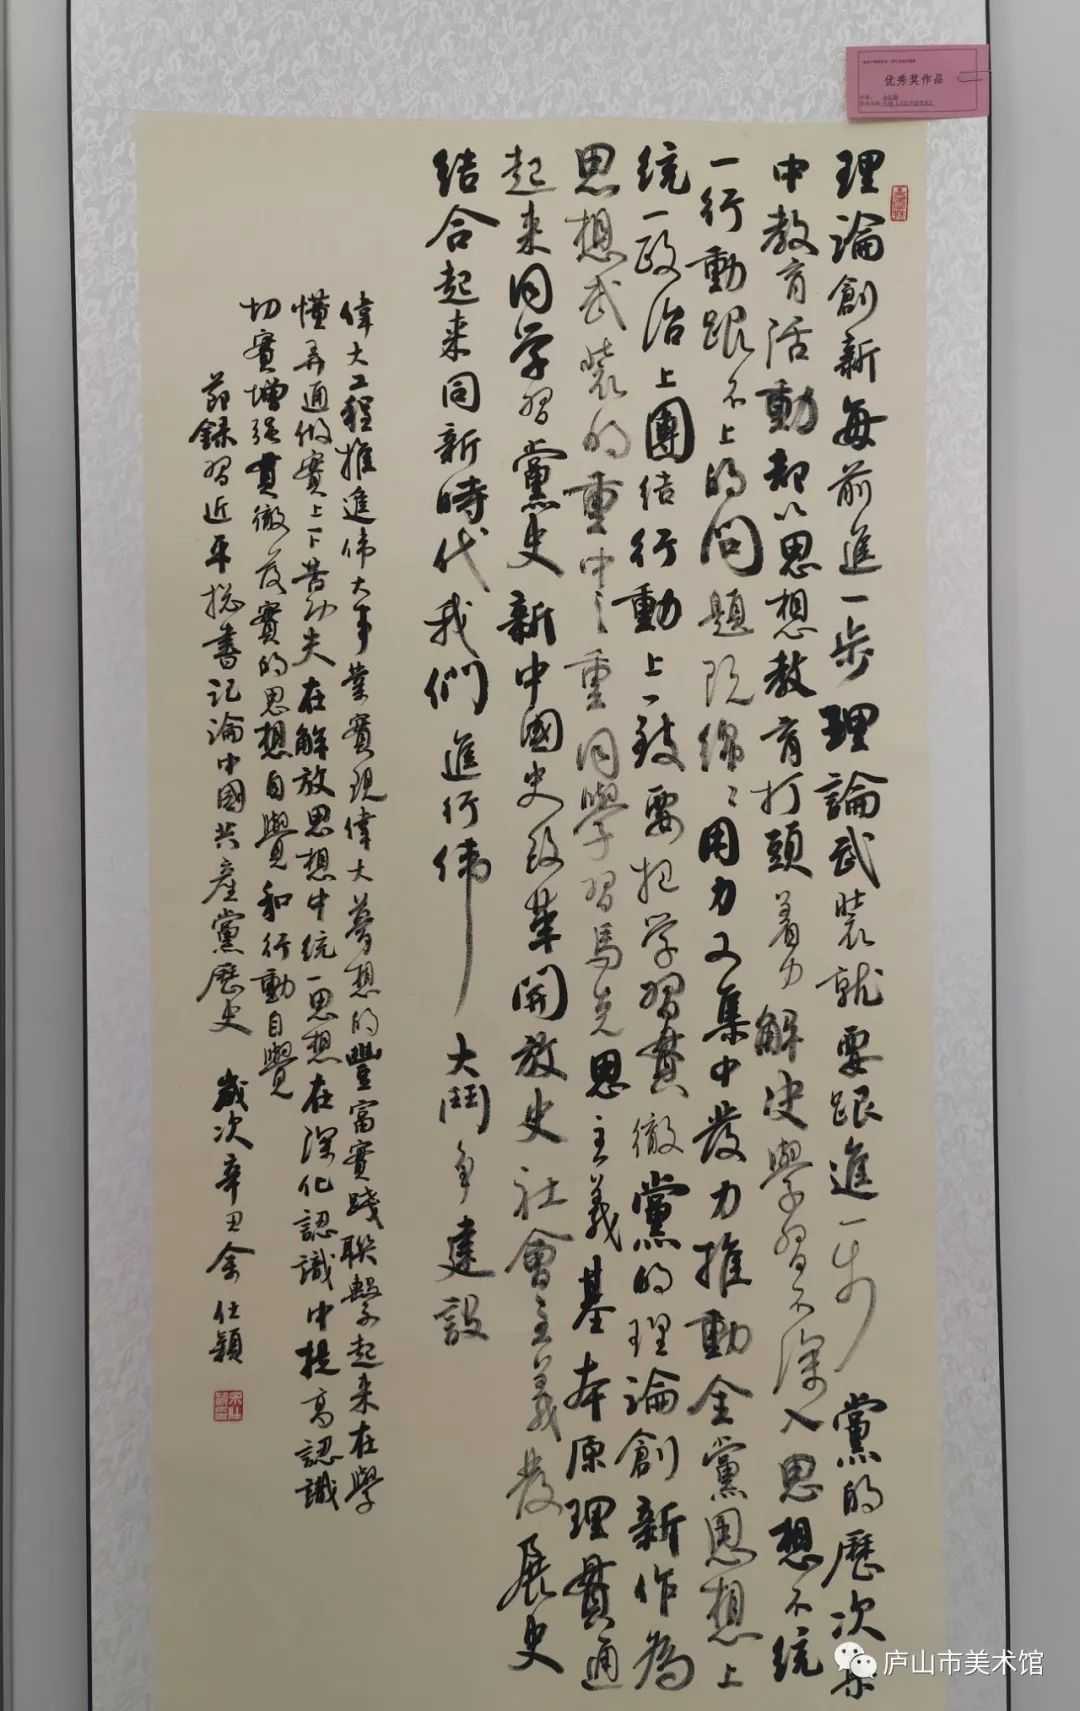 优秀奖作品
理論創新每前進一步理論武裝就要跟進一步黨的歷次集
中教育活動都以思想教育打頭着力解决學習不深入思想不統
一行動跟不上的问題既綿々用力又集中發力推動全黨思想上
统一政治上團结行動上一致要把学習貫徹黨的理論創新作為
思想武裝的重中之重同學習馬克思主義基本原理貫通
起来同学習黨史新中國史改革開放史社會主義發展史
结合起来同新時代我們進行偉大鬥争建設
偉大工程推進偉大事業實現偉大夢想的豐富實踐聯繫起来在學
懂弄通做實上下苦功夫在解放思想中统一思想在深化認識中提高認識
切實增强貫徹落實的思想自覺和行動自覺
節録習近平总書記論中國共產黨歷史 歲次辛丑余仕穎
庐山市美术馆